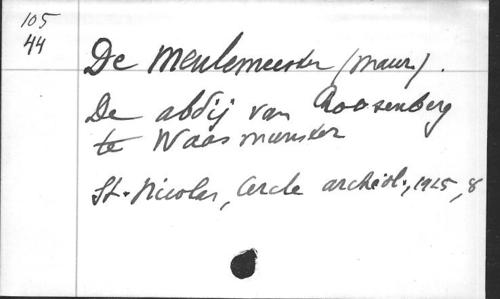 105
44
De Meulemeester (Maur.).
De abdij van Roosenberg
te Waasmunster
St. Nicolas, Cercle archéol., 1925, 8